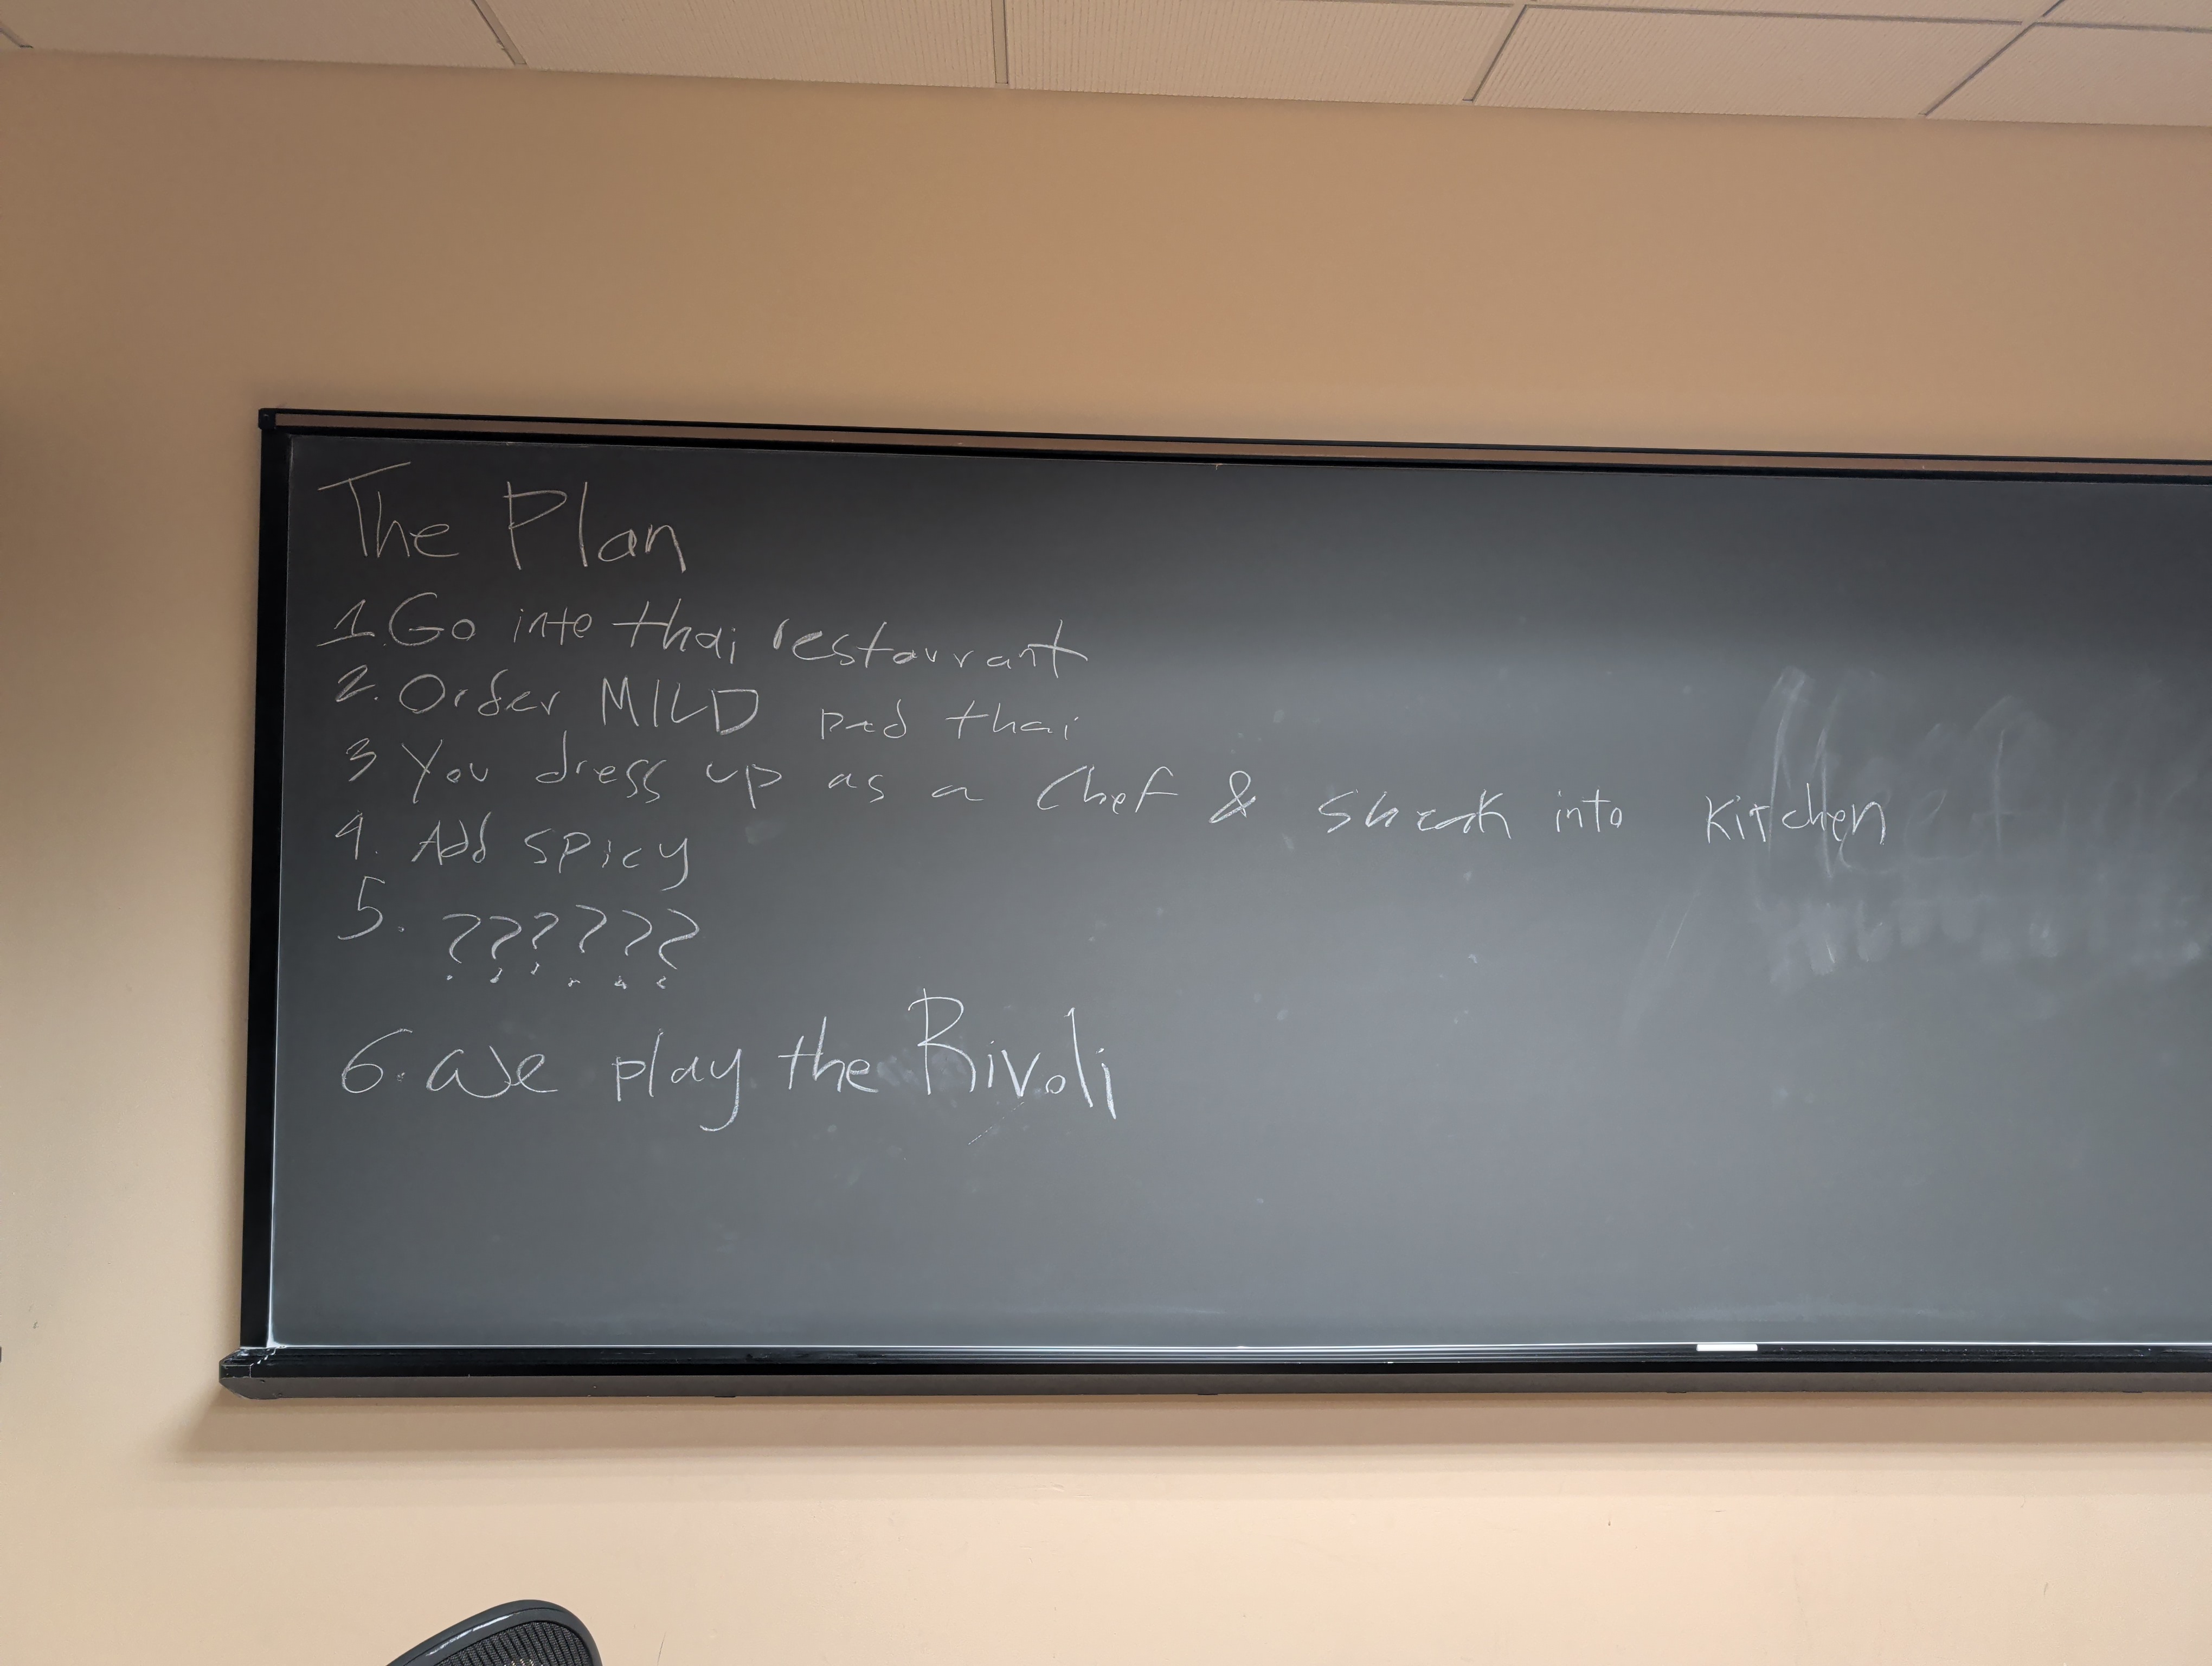 The Plan
1. Go into thai restaurant
2. Order MILD pad thai
3 You dress up as a Chef & sneak into kitchen
4. Add spicy
5. ??????
6. We play the Rivoli